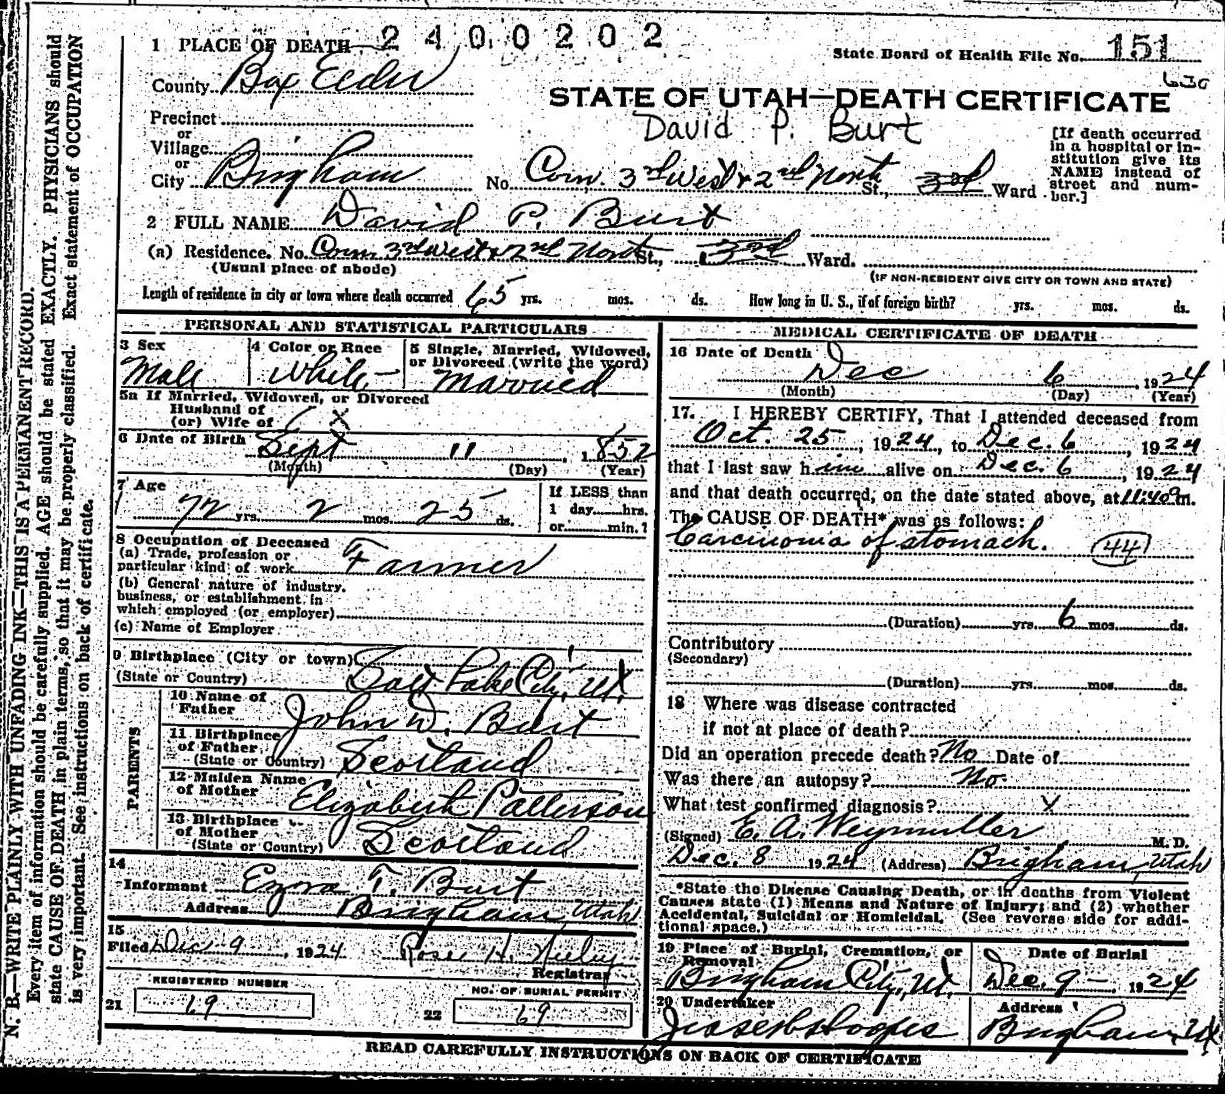 2400202
1 PLACE OF DEATH
State Board of Health File No. 151
630
County Box Elder
STATE OF UTAH—DEATH CERTIFICATE
David P. Burt
Precinct
or
Village
or
City Brigham
No. Corn. 3rd West & 2nd North St., 3rd Ward
[If death occurred
in a hospital or in-
stitution give its
NAME instead of
street and num-
ber.]
2 FULL NAME David P. Burt
(a) Residence. No. Corn 3rd West & 2nd North St., 3rd Ward.
(Usual place of abode)
(IF NON-RESIDENT GIVE CITY OR TOWN AND STATE)
Length of residence in city or town where death occurred 65 yrs. mos. ds. How long in U. S., if of foreign birth? yrs. mos. ds.
PERSONAL AND STATISTICAL PARTICULARS
3 Sex
Male
4 Color or Race
White
5 Single, Married, Widowed,
or Divorced (write the word)
Married
5a If Married, Widowed, or Divorced
Husband of
(or) Wife of X
6 Date of Birth Sept 11, 1852
(Month) (Day) (Year)
7 Age
72 yrs. 2 mos. 25 ds.
If LESS than
1 day....hrs.
or....min.?
8 Occupation of Deceased
(a) Trade, profession or
particular kind of work Farmer
(b) General nature of industry.
business, or establishment in
which employed (or employer)
(c) Name of Employer
9 Birthplace (City or town)
(State or Country) Salt Lake City, Ut.
PARENTS
10 Name of
Father John W. Burt
11 Birthplace
of Father
(State or Country) Scotland
12 Maiden Name
of Mother Elizabeth Patterson
13 Birthplace
of Mother
(State or Country) Scotland
14
Informant Ezra T. Burt
Address Brigham, Utah
15
Filed Dec 9, 1924 Rose H.
Registrar
REGISTERED NUMBER
21 69
NO. OF BURIAL PERMIT
22 69
MEDICAL CERTIFICATE OF DEATH
16 Date of Death
Dec 6, 1924
(Month) (Day) (Year)
17. I HEREBY CERTIFY, That I attended deceased from
Oct. 25, 1924, to Dec. 6, 1924
that I last saw him alive on Dec. 6, 1924
and that death occurred, on the date stated above, at 11:40 m.
The CAUSE OF DEATH* was as follows:
Carcinoma of stomach. 44
(Duration) yrs. 6 mos. ds.
Contributory
(Secondary)
(Duration) yrs. mos. ds.
18 Where was disease contracted
if not at place of death?
Did an operation precede death? No Date of
Was there an autopsy? No.
What test confirmed diagnosis? X
(Signed) E. A. Weymuller M. D.
Dec. 8 1924 (Address) Brigham, Utah
*State the Disease Causing Death, or in deaths from Violent
Causes state (1) Means and Nature of Injury; and (2) whether
Accidental, Suicidal or Homicidal. (See reverse side for addi-
tional space.)
19 Place of Burial, Cremation, or
Removal
Brigham City, Ut.
Date of Burial
Dec. 9 — 1924
20 Undertaker
Address
Brigham, Ut
READ CAREFULLY INSTRUCTIONS ON BACK OF CERTIFICATE
N. B.—WRITE PLAINLY WITH UNFADING INK—THIS IS A PERMANENT RECORD.
Every item of information should be carefully supplied. AGE should be stated EXACTLY. PHYSICIANS should
state CAUSE OF DEATH in plain terms, so that it may be properly classified. Exact statement of OCCUPATION
is very important. See instructions on back of certificate.